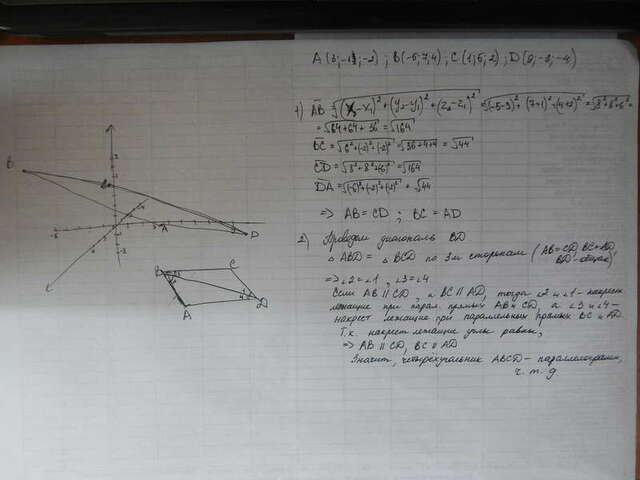 A(3;-1;-2); B(-5;7;4); C(1;5;2); D(9;-3;-4)
1) AB = √(X₂-X₁)²+(Y₂-Y₁)²+(Z₂-Z₁)² = √(-5-3)²+(7+1)²+(4+2)² = √8²+8²+6² =
= √64+64+36 = √164
BC = √6²+(-2)²+(-2)² = √36+4+4 = √44
CD = √8²+8²+(6)² = √164
DA = √(-6)²+(-2)²+(-2)² + √44
=> AB = CD ; BC = AD
2) Проведем диагональ BD
△ ABD = △ BCD по 3м сторонам (AB=CD, BC=AD,
BD-общая)
=> ∠2=∠1, ∠3=∠4
Если AB || CD, а BC || AD, тогда ∠2 и ∠1 - накрест
лежащие при парал. прямых AB и CD, а ∠3 и ∠4 -
накрест лежащие при параллельных прямых BC и AD.
Т.к. накрест лежащие углы равны,
=> AB || CD, BC || AD
Значит, четырехугольник ABCD - параллелограмм,
ч. т. д
B
D
A
C
B
C
A
D